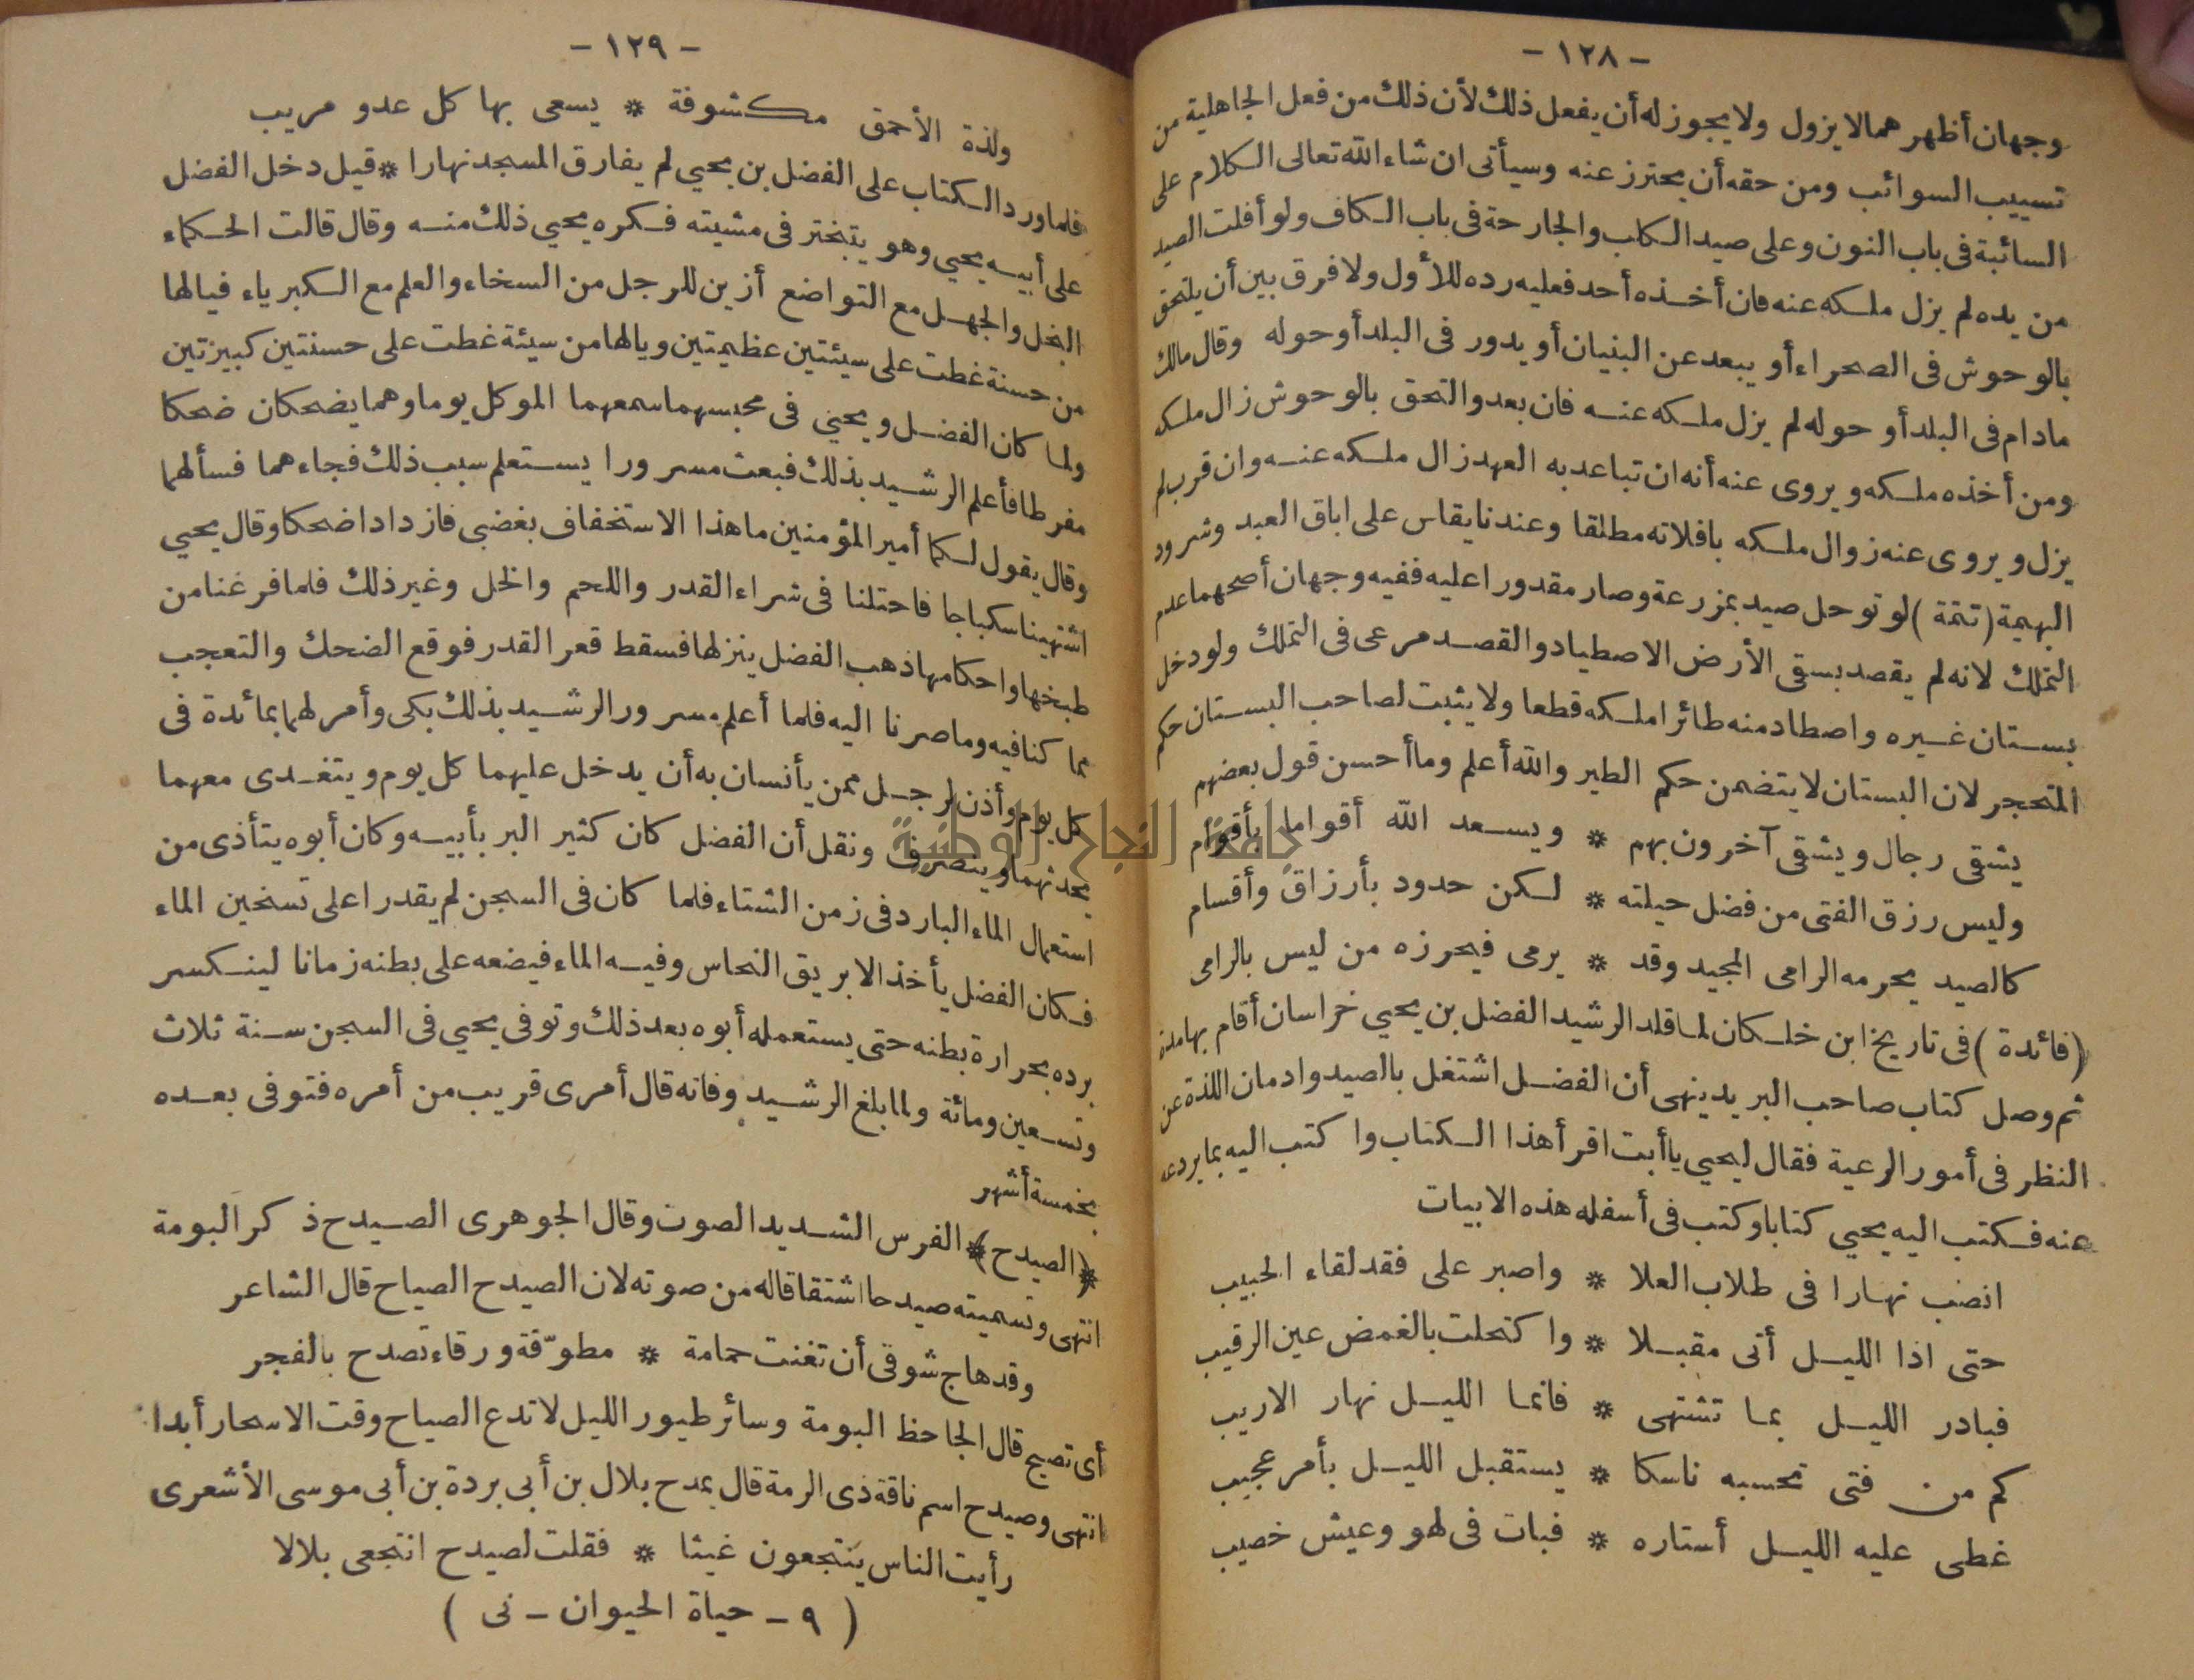 - ١٢٨ -
وجهان أظهرهما لا يزول ولا يجوز له أن يفعل ذلك لأن ذلك من فعل الجاهلية من
تسييب السوائب ومن حقه أن يحترز عنه وسيأتى ان شاء الله تعالى الكلام على
السائبة فى باب النون وعلى صيد الكلب والجارحة فى باب الكاف ولو أفلت الصيد
من يده لم يزل ملكه عنه فان أخذه أحد فعليه رده للأول ولا فرق بين أن يلتحق
بالوحوش فى الصحراء أو يبعد عن البنيان أو يدور فى البلد أو حوله وقال مالك
مادام فى البلد أو حوله لم يزل ملكه عنه فان بعد والتحق بالوحوش زال ملكه
ومن أخذه ملكه ويروى عنه أنه ان تباعد به العهد زال ملكه عنه وان قرب لم
يزل ويروى عنه زوال ملكه بافلاته مطلقا وعندنا يقاس على اباق العبد وشرود
البهيمة (تتمة) لو توحل صيد بمزرعة وصار مقدورا عليه ففيه وجهان أصحهما عدم
التملك لانه لم يقصد بسقى الأرض الاصطياد والقصد مرعى فى التملك ولو دخل
بستان غيره واصطاد منه طائرا ملكه قطعا ولا يثبت لصاحب البستان حكم
المتحجر لان البستان لا يتضمن حكم الطير والله أعلم وما أحسن قول بعضهم
يشقى رجال ويشقى آخرون بهم * ويسعد الله أقواما بأقوام
وليس رزق الفتى من فضل حيلته * لكن حدود بأرزاق وأقسام
كالصيد يحرمه الرامى المجيد وقد * يرمى فيحرزه من ليس بالرامى
(فائدة) فى تاريخ ابن خلكان لما قلد الرشيد الفضل بن يحيي خراسان أقام بها مدة
ثم وصل كتاب صاحب البريد ينهى أن الفضل اشتغل بالصيد وادمان اللذة عن
النظر فى أمور الرعية فقال ليحيي يا أبت اقرأ هذا الكتاب واكتب اليه بما يردعه
عنه فكتب اليه يحيي كتابا وكتب فى أسفله هذه الابيات
انصب نهارا فى طلاب العلا * واصبر على فقد لقاء الحبيب
حتى اذا الليل أتى مقبلا * واكتحلت بالغمض عين الرقيب
فبادر الليل بما تشتهى * فانما الليل نهار الاريب
كم من فتى تحسبه ناسكا * يستقبل الليل بأمر عجيب
غطى عليه الليل أستاره * فبات فى لهو وعيش خصيب
- ١٢٩ -
ولذة الأحمق مكشوفة * يسعى بها كل عدو مريب
فلما ورد الكتاب على الفضل بن يحيي لم يفارق المسجد نهارا * قيل دخل الفضل
على أبيه يحيي وهو يتبختر فى مشيته فكره يحيي ذلك منه وقال قالت الحكماء
البخل والجهل مع التواضع أزين للرجل من السخاء والعلم مع الكبرياء فيالها
من حسنة غطت على سيئتين عظيمتين ويالها من سيئة غطت على حسنتين كبيرتين
ولما كان الفضل ويحيي فى محبسهما سمعهما الموكل يوما وهما يضحكان ضحكا
مفرطا فأعلم الرشيد بذلك فبعث مسرورا يستعلم سبب ذلك فجاءهما فسألهما
وقال يقول لكما أمير المؤمنين ما هذا الاستخفاف بغضبى فازدادا ضحكا وقال يحيي
اشتهينا سكباجا فاحتلنا فى شراء القدر واللحم والخل وغير ذلك فلما فرغنا من
طبخها واحكامها ذهب الفضل ينزلها فسقط قعر القدر فوقع الضحك والتعجب
مما كنا فيه وما صرنا اليه فلما أعلم مسرور الرشيد بذلك بكى وأمر لهما بمائدة فى
كل يوم وأذن لرجل ممن يأنسان به أن يدخل عليهما كل يوم ويتغدى معهما
يحدثهما وينصرف ونقل أن الفضل كان كثير البر بأبيه وكان أبوه يتأذى من
استعمال الماء البارد فى زمن الشتاء فلما كان فى السجن لم يقدرا على تسخين الماء
فكان الفضل يأخذ الابريق النحاس وفيه الماء فيضعه على بطنه زمانا لينكسر
برده بحرارة بطنه حتى يستعمله أبوه بعد ذلك وتوفى يحيي فى السجن سنة ثلاث
وتسعين ومائة ولما بلغ الرشيد وفاته قال أمرى قريب من أمره فتوفى بعده
بخمسة أشهر
﴿الصيدح﴾ الفرس الشديد الصوت وقال الجوهرى الصيدح ذكر البومة
انتهى وتسميته صيدحا اشتقاقا له من صوته لان الصيدح الصياح قال الشاعر
وقد هاج شوقى أن تغنت حمامة * مطوّقة ورقاء تصدح بالفجر
أى تصيح قال الجاحظ البومة وسائر طيور الليل لا تدع الصياح وقت الاسحار أبدا
انتهى وصيدح اسم ناقة ذى الرمة قال يمدح بلال بن أبى بردة بن أبى موسى الأشعرى
رأيت الناس ينتجعون غيثا * فقلت لصيدح انتجعى بلالا
(٩ - حياة الحيوان - نى)
جامعة النجاح الوطنية